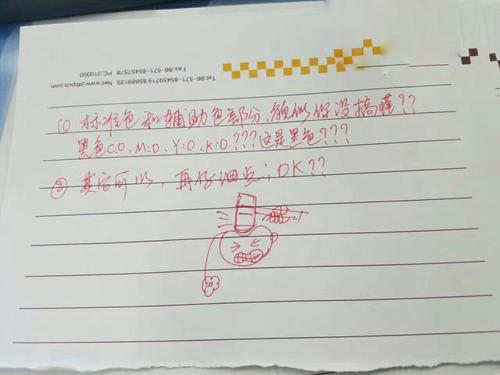 Tel:86-571-85459719 85889139 Net:www.jstbpcb.com
Fax:86-571-85457578 PC:310000
(1) 标准色和辅助色部分,貌似你没搞懂??
黑色C:0、M:0、Y:0、K:0???这是黑色???
② 其它可以,再仔细点;OK??